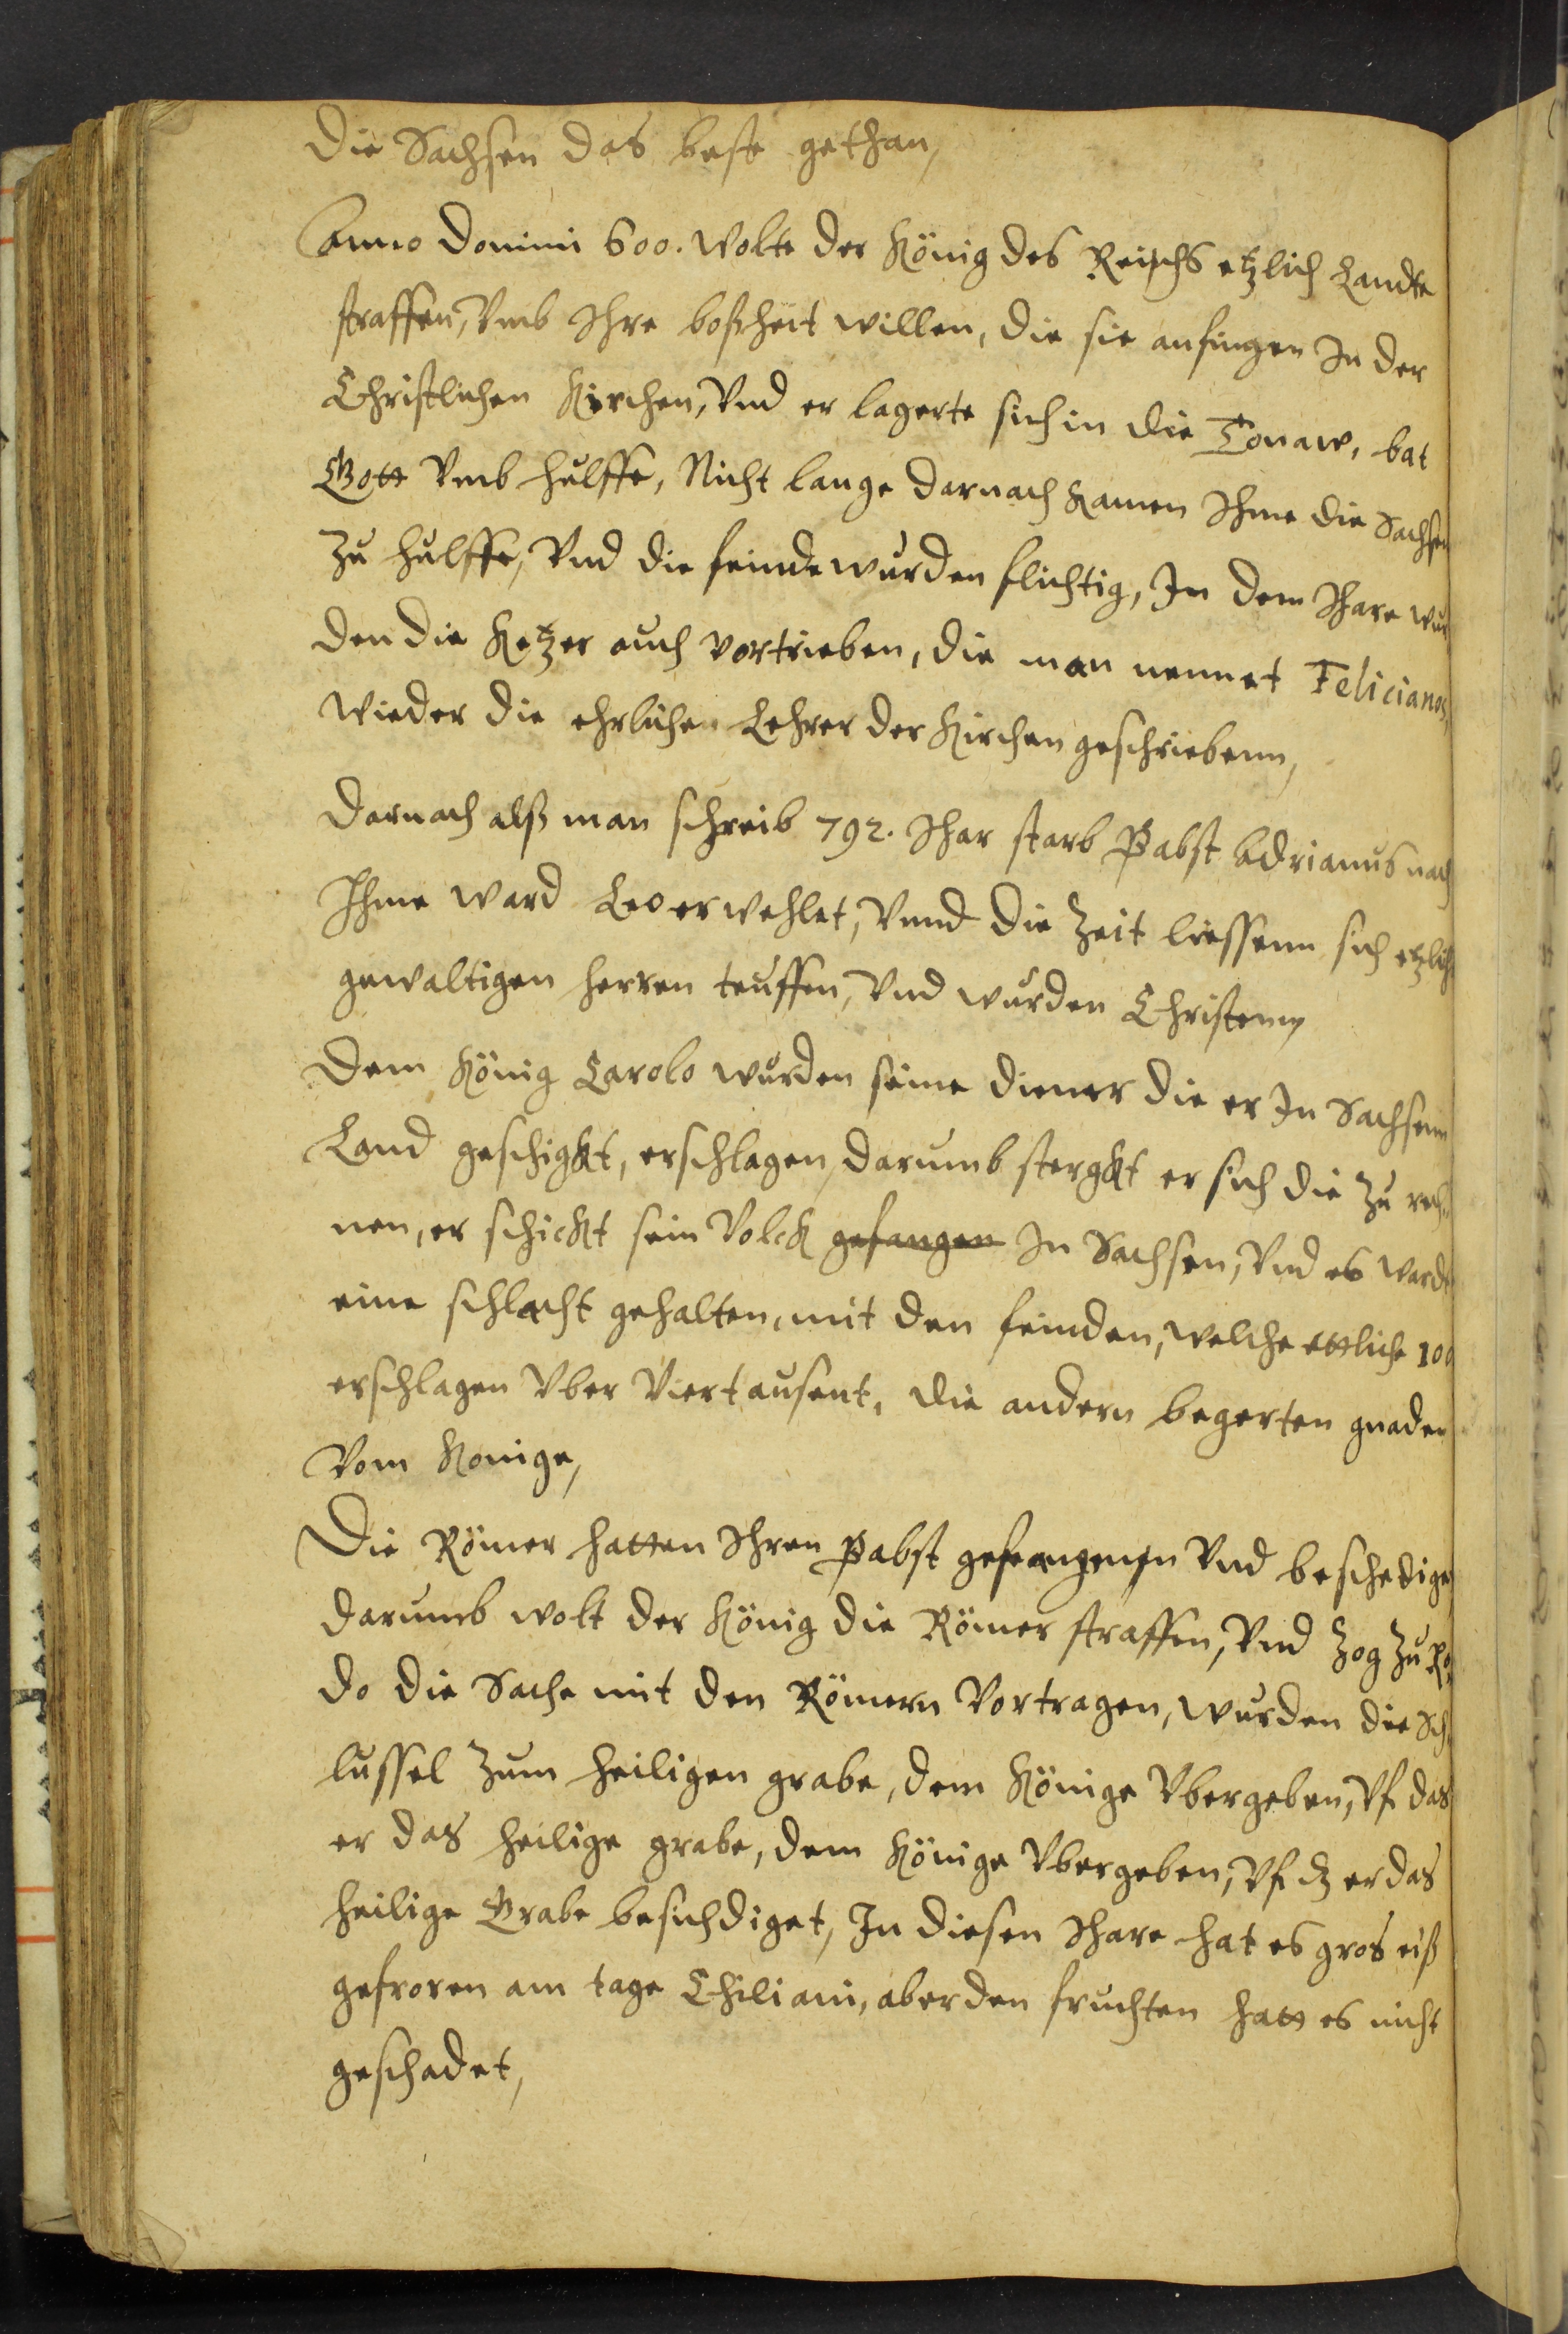 Die Sachsen das beste gethan,
Anno Domini 600. wolte der König des Reichs etzlich Landte
straffen, Vmb Ihre boßheit willen, die sie anfingen In der
Christlichen Kirchen, Vnd er lagerte sich in die Tonaw, bat
Gott Vmb hulffe, Nicht lange darnach kamen Ihme die Sachsen
zu hulffe, Vnd die feinde wurden flichtig, In dem Ihare wur
den die Ketzer auch vortrieben, die man nennet Felicianos,
wieder die ehrlichen Lehrer der Kirchen geschriebenn,
Darnach alß man schreib 792. Ihar starb Pabst Adrianus nach
Ihme ward Leo erwehlet, Vnnd die Zeit liessenn sich etzlich
gewaltigen herren teuffen, Vnd wurden Christenn,
Dem König Carolo wurden seine diener die er In Sachsenn
Land geschigkt, erschlagen, darumb stergkt er sich die zu rech
nen, er schickt sein Volck gefangen In Sachsen, Vnd es wardt
eine schlacht gehalten, mit den feinden, welche ettliche 100
erschlagen Vber Viertausent, die andern begerten gnaden
Vom Konige,
Die Römer hatten Ihren Pabst gefangenn Vnd beschediget
darumb wolt der König die Römer straffen, Vnd zog zu Ro
do die Sache mit den Römern Vortragen, wurden die Sch
lussel zum heiligen grabe, dem Könige Vbergeben, Vf das
er das heilige grabe, dem Könige Vbergeben, Vf dz er das
heilige Grabe besichdiget, In diesen Ihare hat es gros eiß
gefroren am tage Chiliani, aber den fruchten hatt es nicht
geschadet,